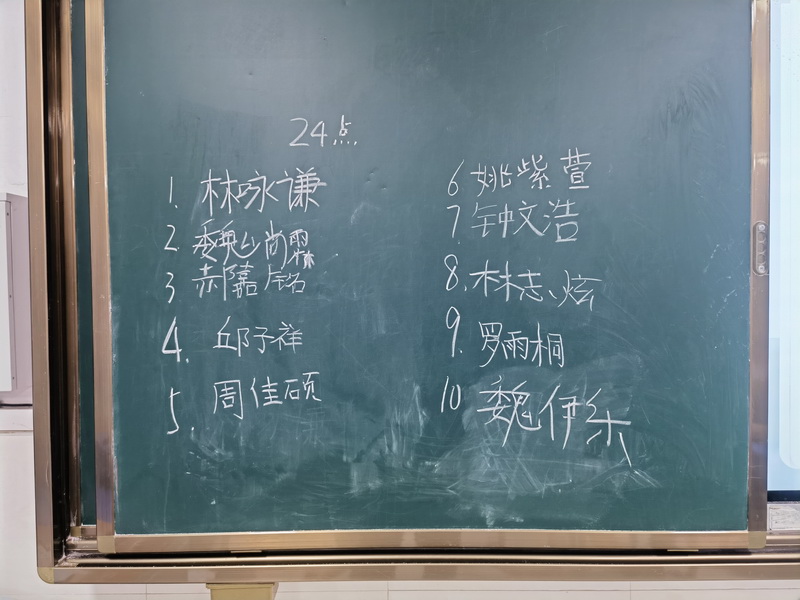 24点
1. 林咏谦
2. 魏尚霖
3 赤嘉铭
4. 邱子祥
5. 周佳硕
6 姚紫萱
7 钟文浩
8. 林志炫
9. 罗雨桐
10 魏伊乐